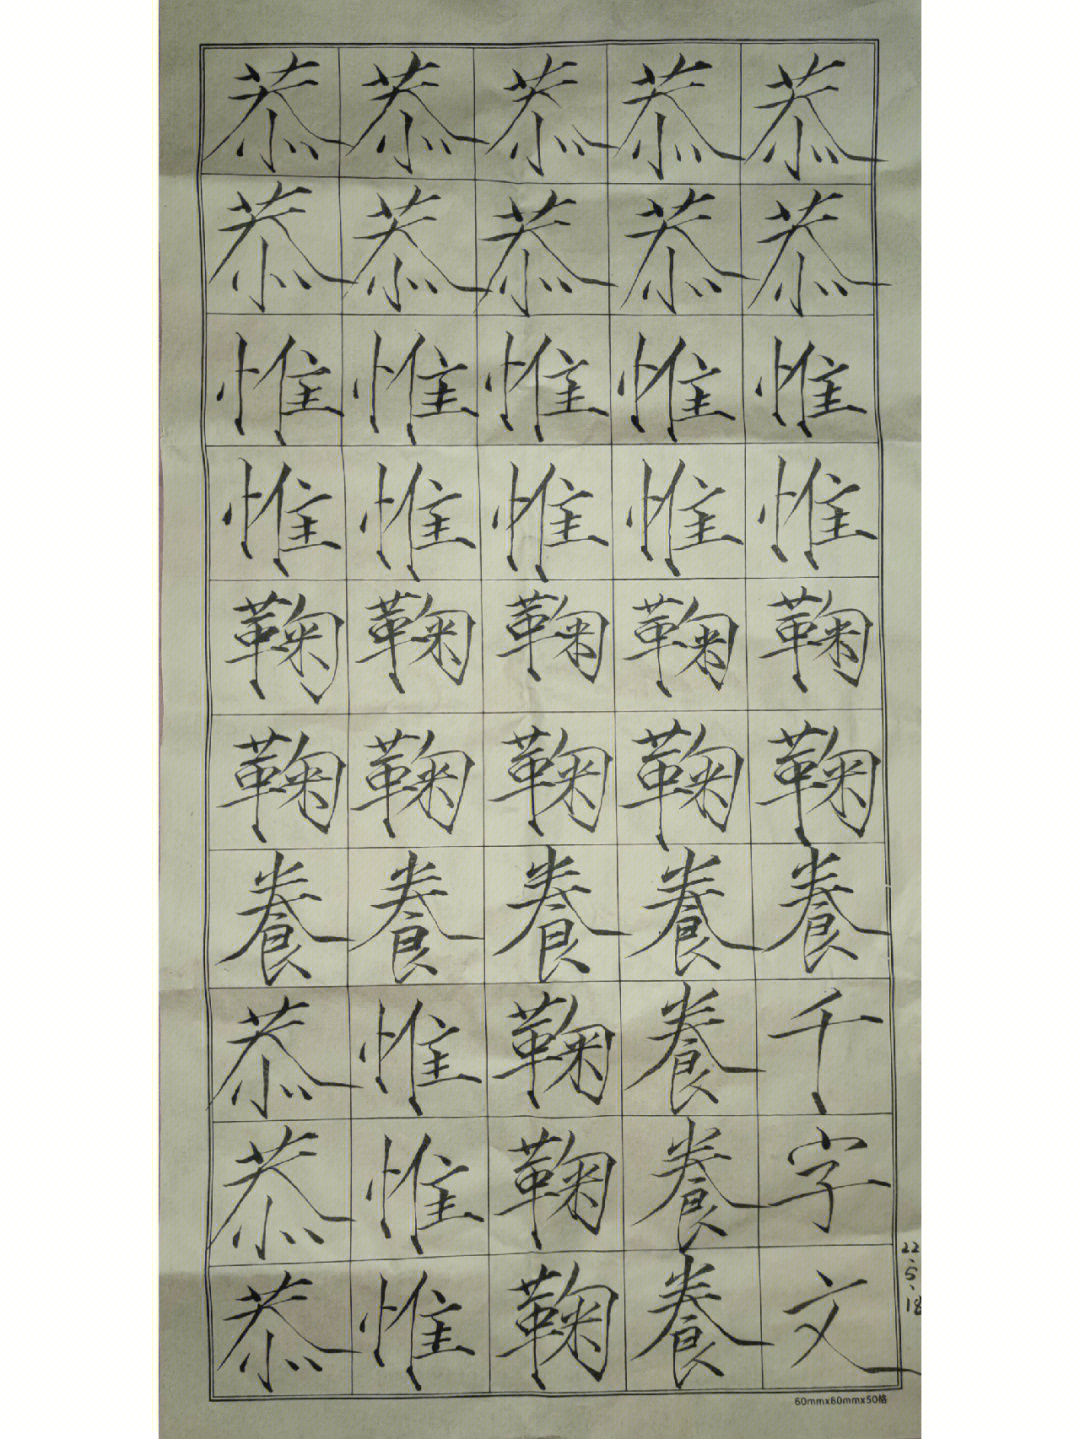 恭恭恭恭恭
恭恭恭恭恭
惟惟惟惟惟
惟惟惟惟惟
鞠鞠鞠鞠鞠
鞠鞠鞠鞠鞠
養養養養養
恭惟鞠養千
恭惟鞠養字
恭惟鞠養文
22.5.18
60mmx60mmx50格